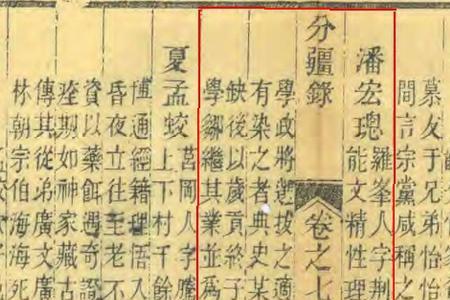 慕友于兄弟怡怡
間言宗黨咸稱之
潘宏璁羅峯人字荆
能文精性理
分疆錄
卷之七
學政將選拔之適
有染之者典史某
缺後以歲貢終子
學鄒繼其業並
夏孟蛟莒岡人字騰
上下村千餘
博通經籍理悟入
昏夜立往至老不
資以藥餌遇奇證
痊期如神家藏古
傳其從弟廣文廣
林朝宗伯海海死